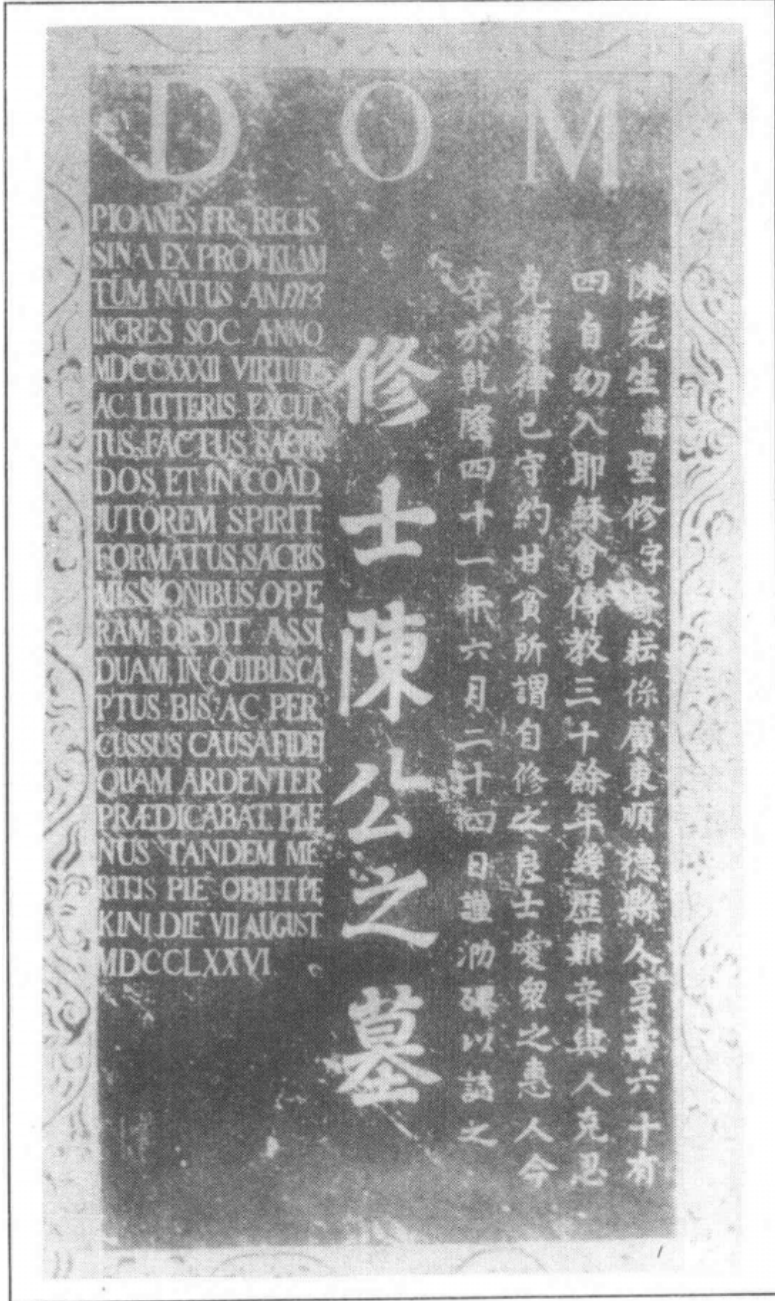 D O M
P IOANES FR. REGIS
SINA EX PROV. KUAM
TŪM NATUS AN
INGRES SOC ANNO
MDCCXXXII VIRTUTIS
AC LITTERIS EXCUL
TUS, FACTUS SACER
DOS, ET IN COAD
JUTOREM SPIRIT
FORMATUS, SACRIS
MISSIONIBUS, OPE
RAM DEDIT ASSI
DUAM, IN QUIBUS CA
PTUS BIS, AC PER
CUSSUS CAUSA FIDEI
QUAM ARDENTER
PRÆDICABAT. PLE
NUS TANDEM ME
RITIS PIE OBIIT PE
KINI DIE VII AUGUST
MDCCLXXVI
修士陳公之墓
陳先生諱聖修字 耘係廣東順德縣人享壽六十有
四自幼入耶穌會傳教三十餘年幾歷艱辛與人克忍
克謙律已守約甘貧所謂自修之良士愛眾之惠人今
卒於乾隆四十一年六月二十四日謹泐碑以誌之